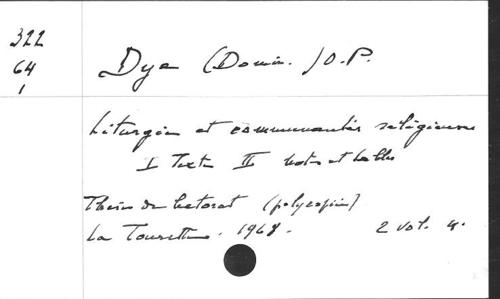 322
64
1
Dye (Domin.) O.P.
Liturgie et communautés religieuses
I Texte II Notes et tables
Thèse de lectorat (polycopiée)
La Tourette. 1968. 2 vol. 4°.